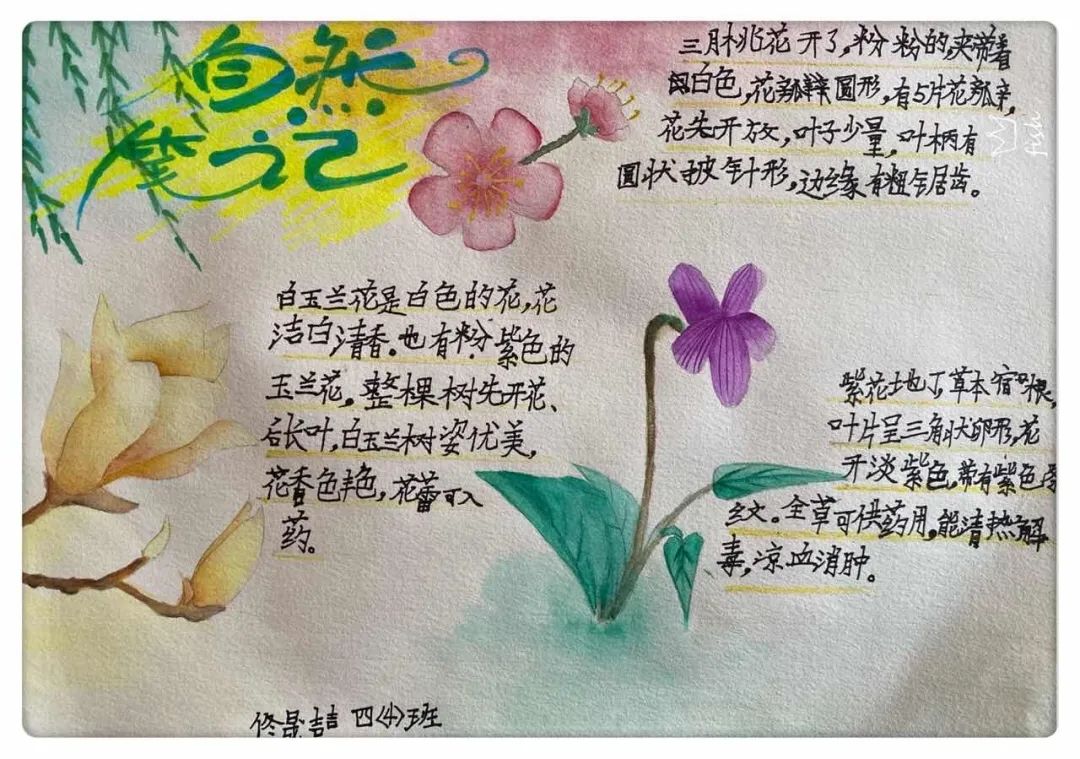 自然
笔记
三月桃花开了，粉粉的，夹带着
白色，花瓣圆形，有5片花瓣，
花先开放，叶子少量，叶柄有
圆状披针形，边缘有粗锯齿。
fish
白玉兰花是白色的花，花
洁白清香。也有粉.紫色的
玉兰花。整棵树先开花、
后长叶，白玉兰树姿优美，
花香色丰色，花蕾可入
药。
紫花地丁草本宿根，
叶片呈三角状卵形，花
开淡紫色，带有紫色
纹。全草可供药用，能清热解
毒，凉血消肿。
佟晟喆 四〈4〉班